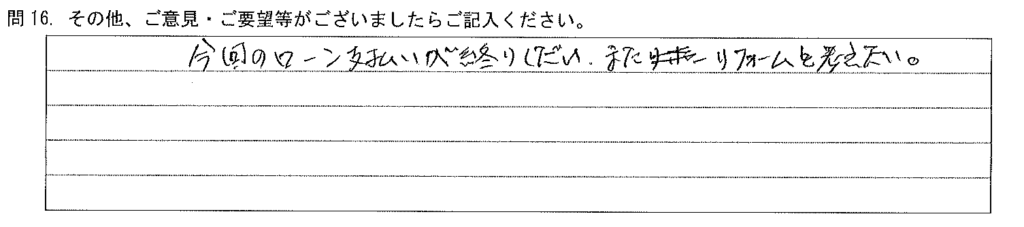 問16. その他、ご意見・ご要望等がございましたらご記入ください。
今回のローン支払いが終りしだい、また リフォームを考えたい。